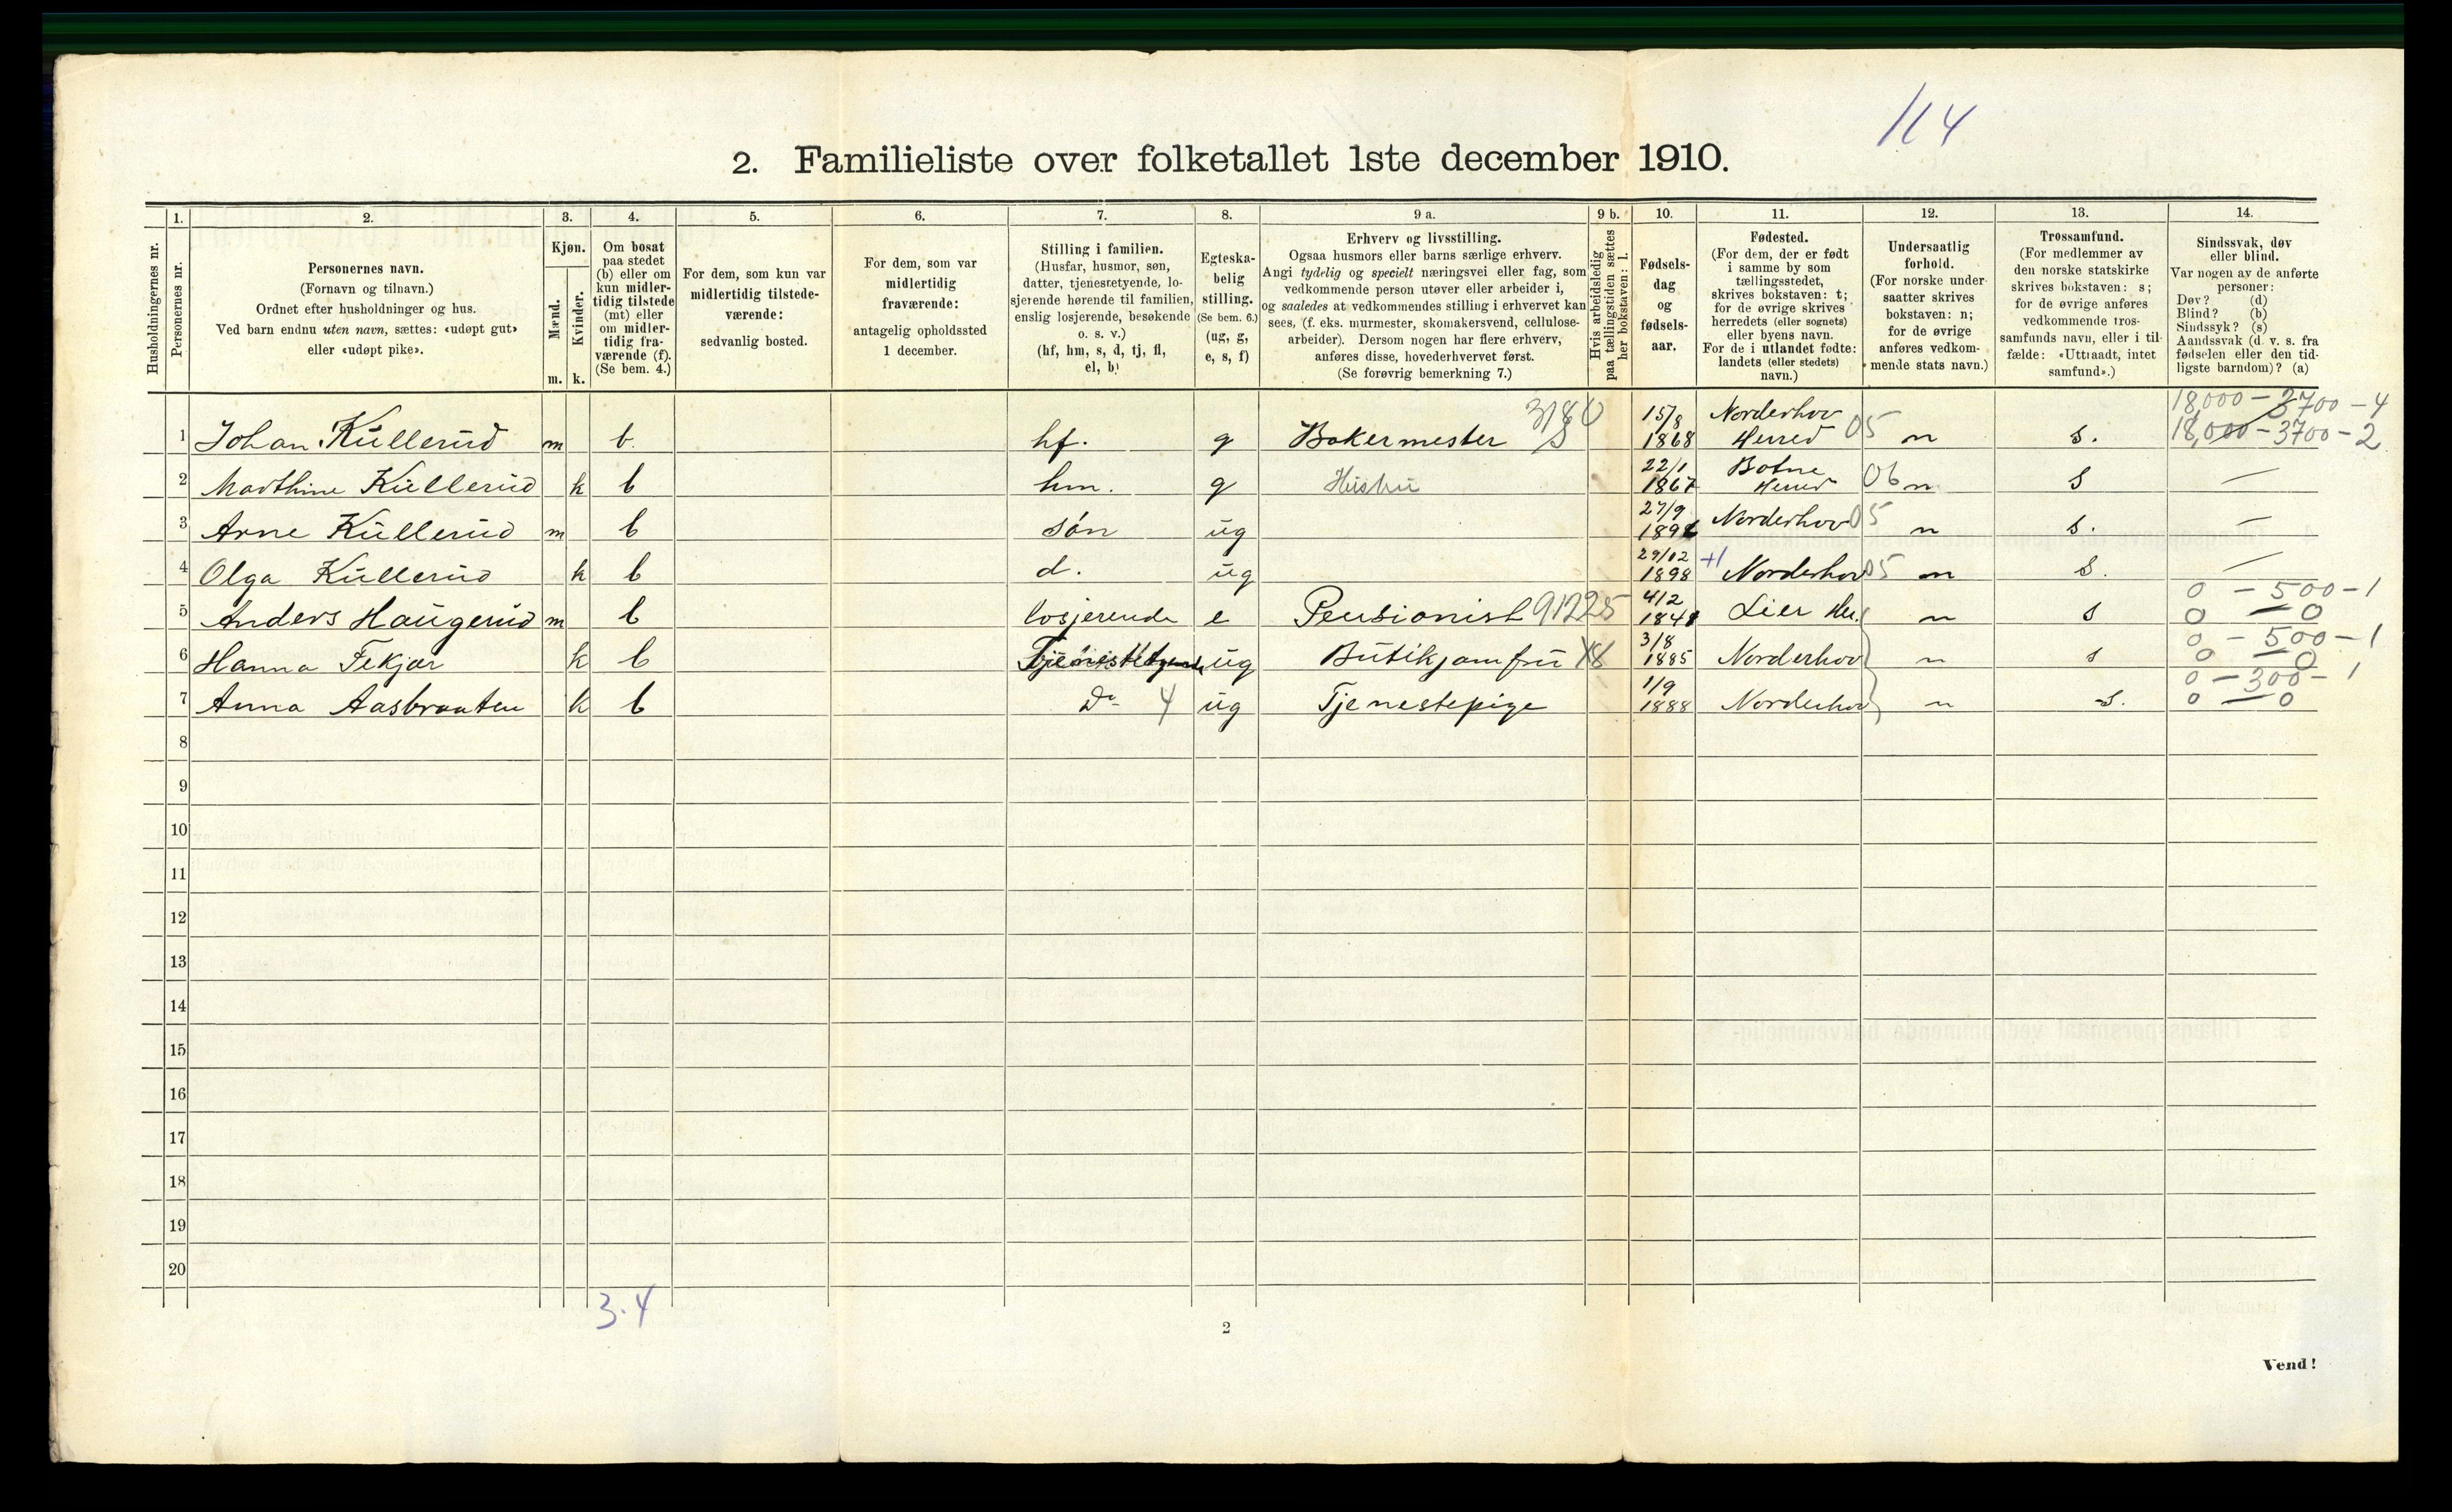 114
2. Familieliste over folketallet 1ste december 1910.
1. 2. 3. 4. 5. 6. 7. 8. 9 a. 9 b. 10. 11. 12. 13. 14.
Husholdningernes nr.
Personernes nr.
Personernes navn.
(Fornavn og tilnavn.)
Ordnet efter husholdninger og hus.
Ved barn endnu uten navn, sættes: «udøpt gut»
eller «udøpt pike».
Kjøn.
Mænd.
Kvinder.
m. k.
Om bosat
paa stedet
(b) eller om
kun midler-
tidig tilstede
(mt) eller
om midler-
tidig fra-
værende (f).
(Se bem. 4.)
For dem, som kun var
midlertidig tilstede-
værende:
sedvanlig bosted.
For dem, som var
midlertidig
fraværende:
antagelig opholdssted
1 december.
Stilling i familien.
(Husfar, husmor, søn,
datter, tjenestetyende, lo-
sjerende hørende til familien,
enslig losjerende, besøkende
o. s. v.)
(hf, hm, s, d, tj, fl,
el, b)
Egteska-
belig
stilling.
(Se bem. 6.)
(ug, g,
e, s, f)
Erhverv og livsstilling.
Ogsaa husmors eller barns særlige erhverv.
Angi tydelig og specielt næringsvei eller fag, som
vedkommende person utøver eller arbeider i,
og saaledes at vedkommendes stilling i erhvervet kan
sees, (f. eks. murmester, skomakersvend, cellulose-
arbeider). Dersom nogen har flere erhverv,
anføres disse, hovederhvervet først.
(Se forøvrig bemerkning 7.)
Hvis arbeidsledig
paa tællingstiden sættes
her bokstaven: l.
Fødsels-
dag
og
fødsels-
aar.
Fødested.
(For dem, der er født
i samme by som
tællingsstedet,
skrives bokstaven: t;
for de øvrige skrives
herredets (eller sognets)
eller byens navn.
For de i utlandet fødte:
landets (eller stedets)
navn.)
Undersaatlig
forhold.
(For norske under-
saatter skrives
bokstaven: n;
for de øvrige
anføres vedkom-
mende stats navn.)
Trossamfund.
(For medlemmer av
den norske statskirke
skrives bokstaven: s;
for de øvrige anføres
vedkommende tros-
samfunds navn, eller i til-
fælde: «Uttraadt, intet
samfund».)
Sindssvak, døv
eller blind.
Var nogen av de anførte
personer:
Døv? (d)
Blind? (b)
Sindssyk? (s)
Aandssvak (d. v. s. fra
fødselen eller den tid-
ligste barndom)? (a)
3180 15/8 Norderhov 18,000 - 3700 - 4
1 Johan Kullerud m b. hf. g Bakermester S 1868 Herred 05 n s. 18,000 - 3700 - 2
22/1 Botne
2 Marthine Kullerud k b hm. g Hustru 1867 Herred 06 n s —
27/9
3 Arne Kullerud m b søn ug Norderhov 05 n s. —
29/12
4 Olga Kullerud k b d. ug 1898 +1 Norderhov 05 n s. —
4/2 0 - 500 - 1
5 Anders Haugerud m b losjerende e Pensionist 91225 Lier Her. n s 0 — 0
3/8 0 - 500 - 1
6 Hanna Fekjær k b Tjenestetyende ug Butikjomfru X8 1885 Norderhov n s 0 — 0
1/9 0 - 300 - 1
7 Anna Aasbraaten k b Do 4 ug Tjenestepige 1888 Norderhov n s. 0 — 0
8
9
10
11
12
13
14
15
16
17
18
19
20
3.4
2
Vend!